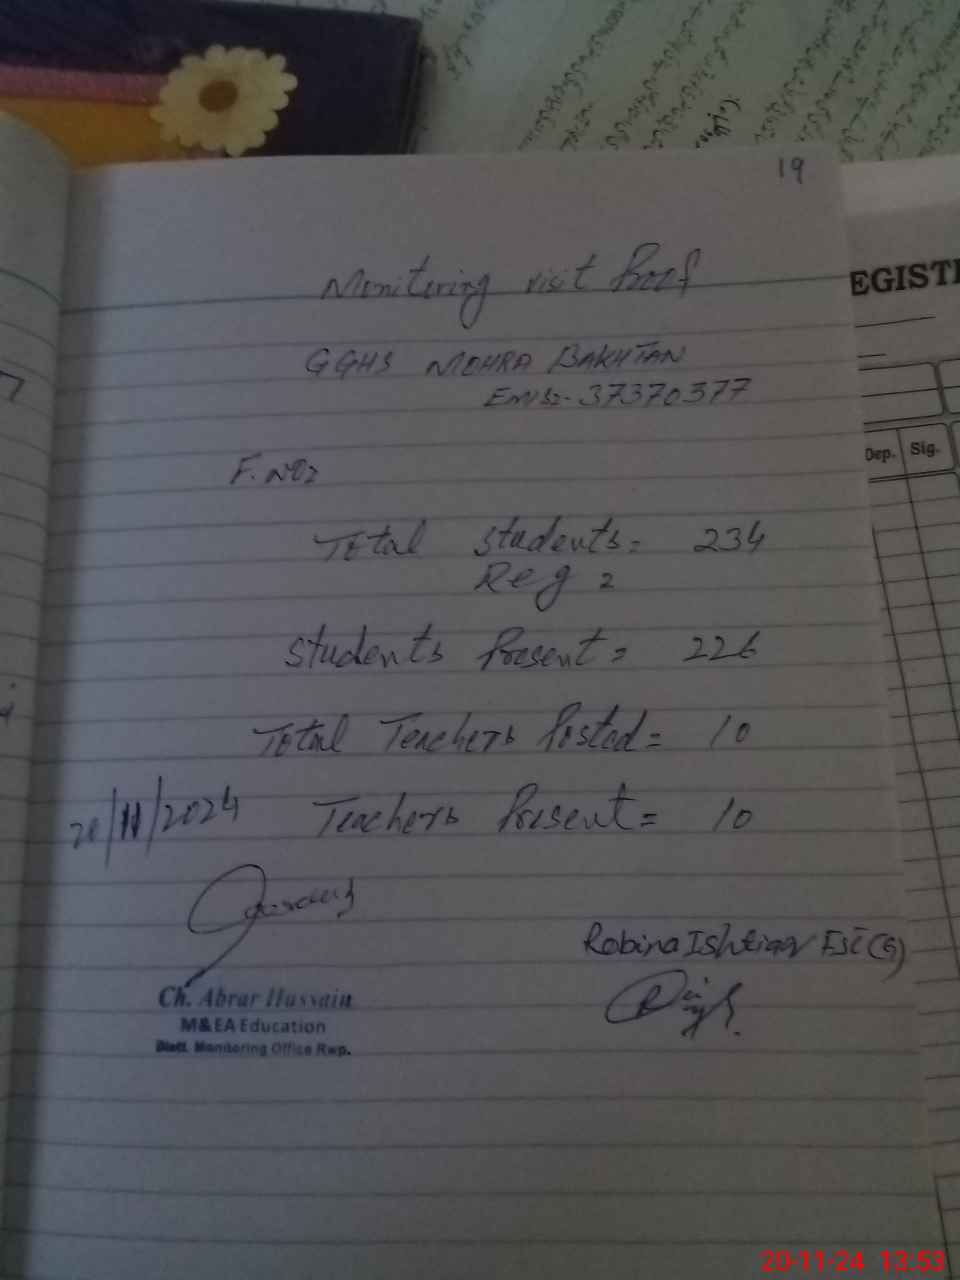 19
Monitering visit Proof
GGHS MOHRA BAKHTAN
Emis:- 37370377
F. No:
Total students = 234
Reg =
Students Present = 226
Total Teachers Posted = 10
20/11/2024 Teachers Present = 10
Robina Ishtiaq ESE(G)
Ch. Abrar Hussain
M&EA Education
Distt. Monitoring Office Rwp.
EGISTE
Dep. Sig.
20-11-24 13:53